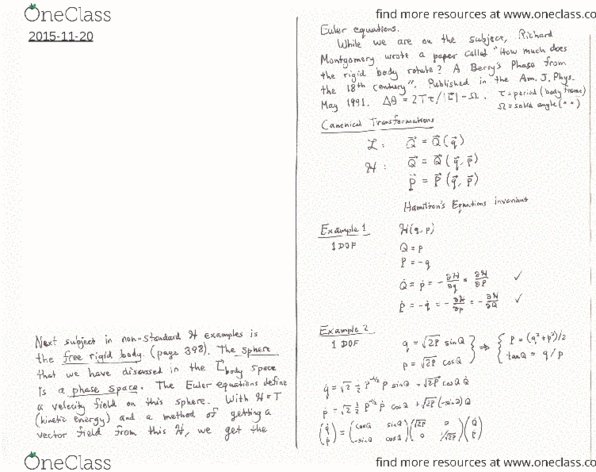 OneClass
find more resources at www.oneclass.com
2015-11-20
Next subject in non-standard H examples is
the free rigid body. (page 398). The sphere
that we have discussed in the L⃗body space
is a phase space. The Euler equations define
a velocity field on this sphere. With H=T
(kinetic energy) and a method of getting a
vector field from this H, we get the
Euler equations.
While we are on the subject, Richard
Montgomery wrote a paper called "How much does
the rigid body rotate? A Berry's Phase from
the 18th century". Published in the Am. J. Phys.
May 1991. Δθ = 2Tτ/|L⃗| - Ω. τ = period (body frame)
Ω = solid angle (" ")
Canonical Transformations
L: Q⃗ = Q⃗(q⃗)
H: Q⃗ = Q⃗(q⃗,p⃗)
P⃗ = P⃗(q⃗,p⃗)
Hamilton's Equations invariant
Example 1 H(q,p)
1 DOF Q = p
P = -q
Q̇ = ṗ = -∂H/∂q = ∂H/∂P ✓
Ṗ = -q̇ = -∂H/∂p = -∂H/∂Q ✓
Example 2
1 DOF q = √2P sinQ } ⇒ { P = (q²+p²)/2
p = √2P cosQ tanQ = q/p
q̇ = √2 ½ P^-½ Ṗ sinQ + √2P cosQ Q̇
ṗ = √2 ½ P^-½ Ṗ cosQ + √2P (-sinQ) Q̇
(q̇ ṗ) = (cosQ sinQ -sinQ cosQ)(√2P 0 0 1/√2P)(Q̇ Ṗ)
OneClass
find more resources at www.oneclass.com